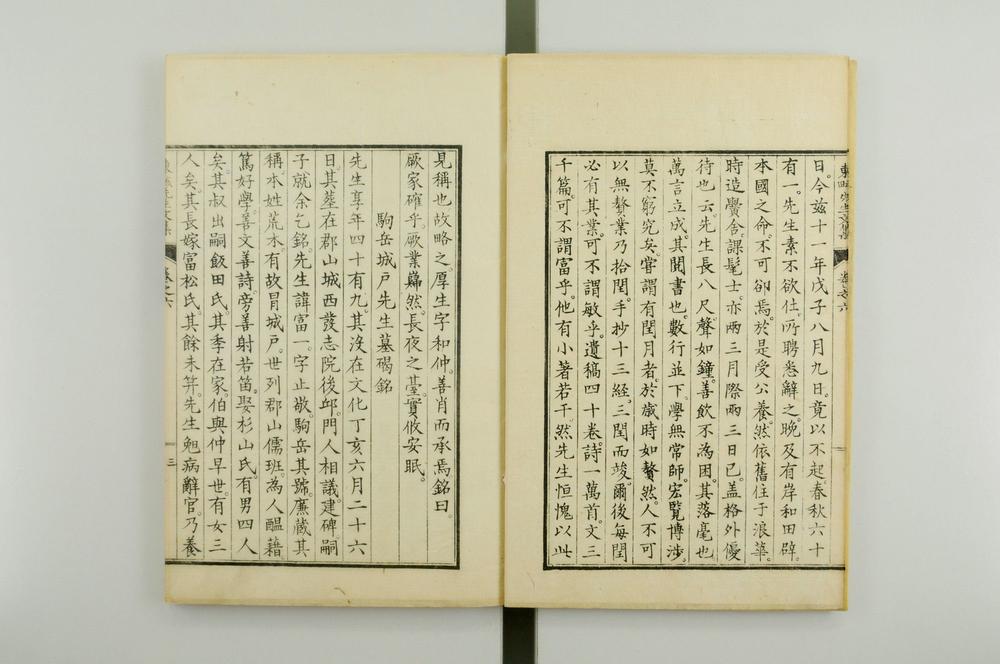 日。今茲十一年戊子八月九日。竟以不起。春秋六十
有一。先生素不欲仕。所聘悉辭之。晚及有岸和田辟。
本國之命。不可卻焉。於是受公養。然依舊住于浪華。
時造黌舍。課髦士。亦兩三月際兩三日已。盖格外優
待也云。先生長八尺。聲如鐘。善飲不為困。其落毫也
萬言立成。其閱書也。數行並下。學無常師。宏覽博涉。
莫不窮究矣。嘗謂有閏月者於歲時如贅然。人不可
以無贅業。乃拾閏手抄十三經。三閏而竣。爾後每閏
必有其業。可不謂敏乎。遺稿四十卷。詩一萬首。文三
千篇。可不謂富乎。他有小著若干。然先生恒愧以此
見稱也。故略之。厚生字和仲。善肖而承焉。銘曰。
厥家確乎。厥業巋然。長夜之臺。實攸安眠。
駒岳城戸先生墓碣銘
先生享年四十有九。其沒在文化丁亥六月二十六
日。其葬在郡山城西發志院後邱。門人相議。建碑。嗣
子就余乞銘。先生諱富一。字止敬。駒岳其號。廉藏其
稱。本姓荒木。有故冒城戸。世列郡山儒班。為人醞藉
篤好學。善文善詩。旁善射若笛。娶杉山氏。有男四人
矣。其叔出嗣飯田氏。其季在家。伯與仲早世。有女三
人矣。其長嫁富松氏。其餘未笄。先生勉病辭官。乃養
卷之六
三